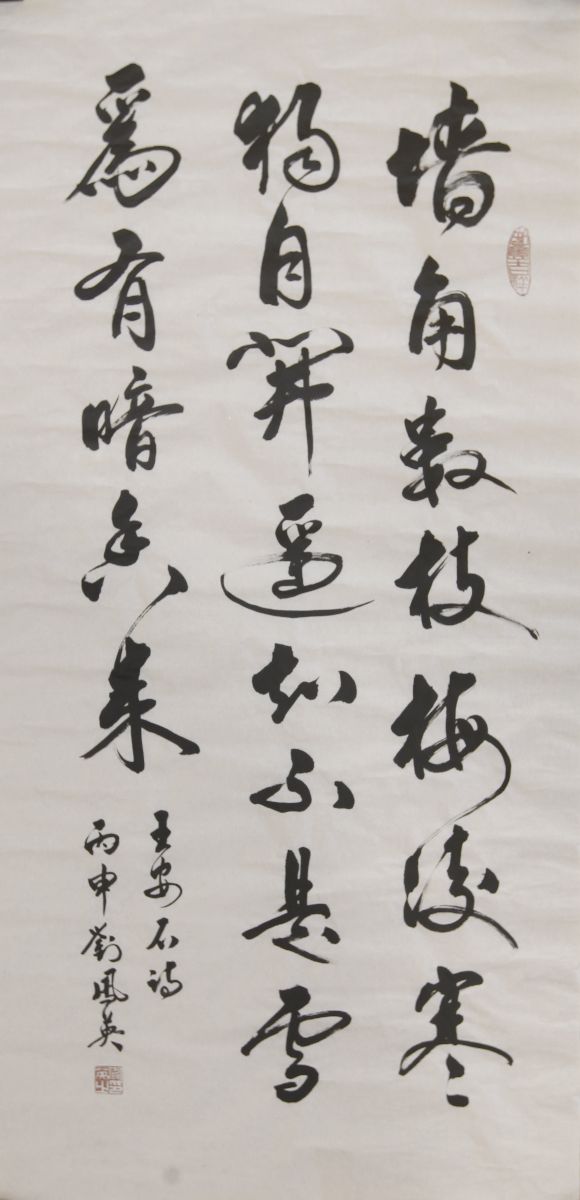 墙角数枝梅凌寒
独自開遥知不是雪
為有暗香来
王安石诗
丙申劉風英